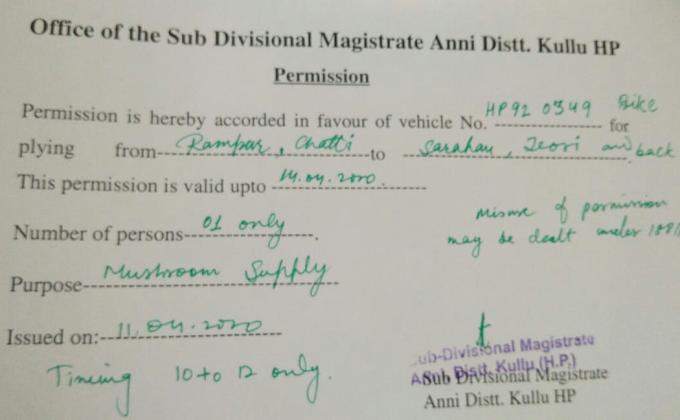 Office of the Sub Divisional Magistrate Anni Distt. Kullu HP
Permission
Permission is hereby accorded in favour of vehicle No. HP92 0349 Bike for
plying from Rampur, Chatti to Sarahan, Jeori and back
This permission is valid upto 14.04.2020.
Number of persons 01 only.
misuse of permission
may be dealt under 188
Purpose Mushroom Supply
Issued on: 11.04.2020
Timeing 10 to 12 only.
Sub-Divisional Magistrate
Distt. Kullu (H.P.)
Sub Divisional Magistrate
Anni Distt. Kullu HP